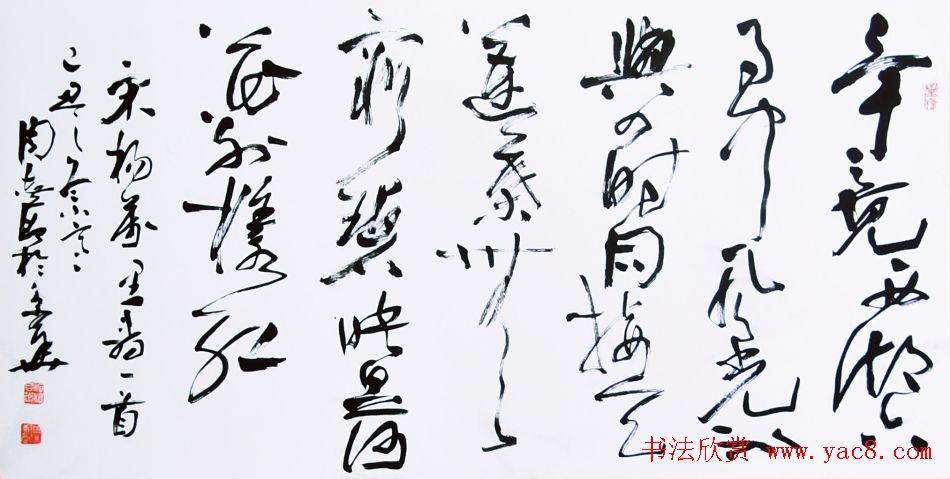 毕竟西湖六
月中风光不
與四时同接天
莲葉無
穷碧映日荷
花别样红
宋杨万里诗一首
己丑之冬
周於京華
书法欣赏 www.yac8.com